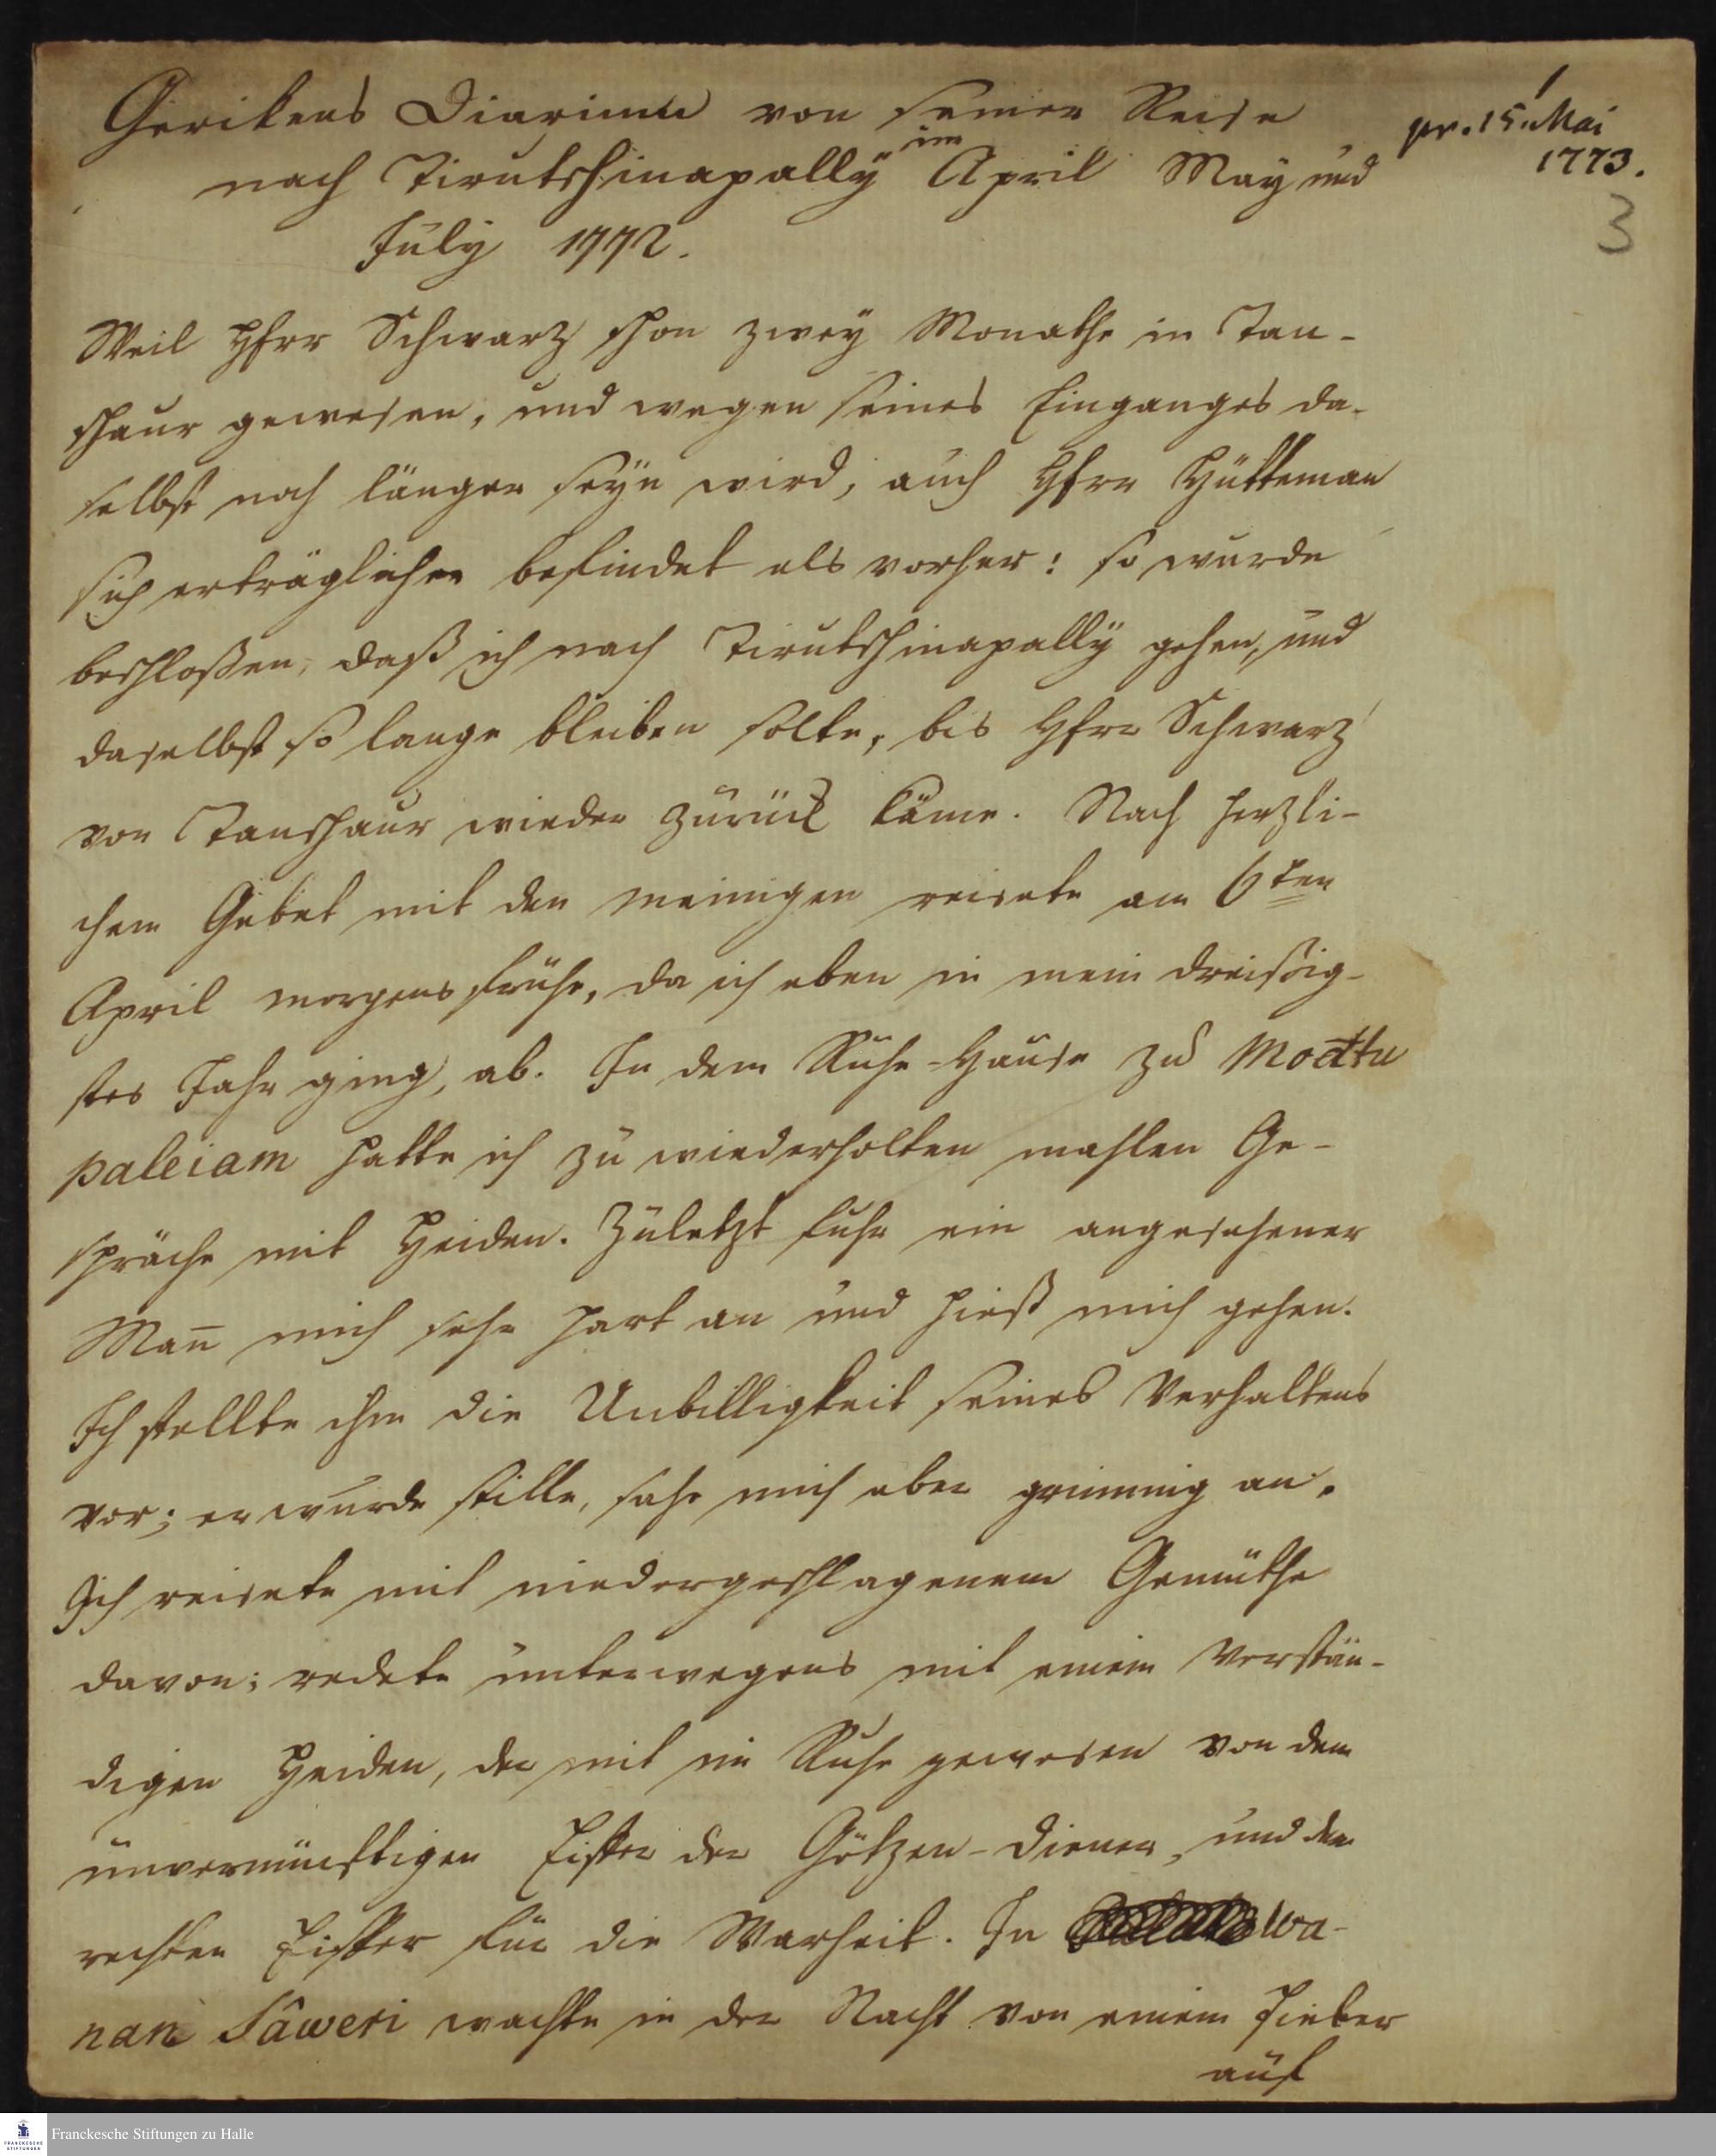 Gerikens Diarium von seiner Reise
nach Tirutschinapally im April May und
July 1772.
pr. 15. Mai
1773.
3
Weil Hherr Schwarz schon zwey Monathe in Tan-
schaur gewesen, und wegen seines Einganges da-
selbst noch länger seyn wird, auch Hherr Hütteman
sich erträglicher befindet als vorher: so wurde
beschloßen, daß ich nach Tirutschinapally gehen, und
daselbst so lange bleiben solte, bis Hherr Schwarz
von Tanschaur wieder zurück käme. Nach herzli-
chem Gebet mit den meinigen reisete am 6ten
April morgens frühe, da ich eben in mein dreisig-
stes Jahr ging, ab. In dem Ruhe-Hause zu Mottu
paleiam hatte ich zu wiederholten mahlen Ge-
spräche mit Heiden. Zuletzt fuhr ein angesehener
Man̄ mich sehr hart an und hieß mich gehen.
Ich stellte ihm die Unbilligkeit seines Verhaltens
vor; er wurde stille, sahe mich aber grimmig an.
Ich reisete mit niedergeschlagenem Gemüthe
davon; redete unterwegens mit einem verstän-
digen Heiden, der mit im Ruhe gewesen von dem
unvernünftigen Eiffer der Götzen-Diener, und dem
rechten Eiffer für die Warheit. In Wa-
nan Sâweri wachte in der Nacht von einem Fieber
auf
Franckesche Stiftungen zu Halle